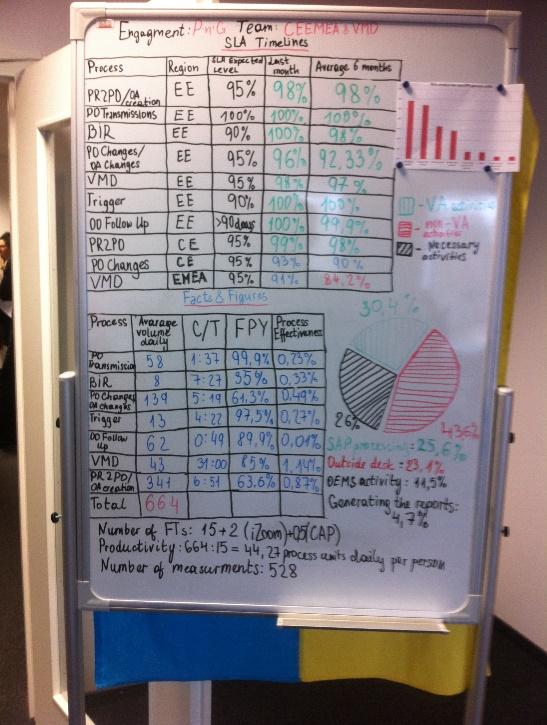 Engagment: PnG Team: CEEMEA & VMD
SLA Timelines
Process Region SLA Expected Level Last month Average 6 months
PR2PO/OA creation EE 95% 98% 98%
PO Transmissions EE 100% 100% 100%
BIR EE 90% 100% 98%
PO Changes/ OA Changes EE 95% 96% 92,33%
VMD EE 95% 98% 97%
Trigger EE 90% 100% 100%
OO Follow Up EE >90days 100% 99,9%
PR2PO CE 95% 99% 98%
PO Changes CE 95% 93% 90%
VMD EMEA 95% 91% 84,2%
- VA activities
- non-VA activities
- Necessary activities
Facts & Figures
Process Avarage volume daily C/T FPY Process Effectiveness
PO Transmission 58 1:37 99,9% 0,23%
BiR 8 7:27 95% 0,33%
PO Changes OA changes 139 5:19 61,3% 0,49%
Trigger 13 4:22 97,5% 0,27%
OO Follow Up 62 0:49 89,9% 0,01%
VMD 43 31:00 85% 1,14%
PR2PO/ OA creation 341 6:51 63.6% 0,87%
Total 664
30,4%
26%
43,6%
SAP processing: 25,6%
Outside desk: 23,1%
OEMS activity: 11,5%
Generating the reports: 4,7%
Number of FTs: 15+2 (iZoom)+0,5(CAP)
Productivity: 664:15 = 44,27 process units daily per person
Number of measurments: 528